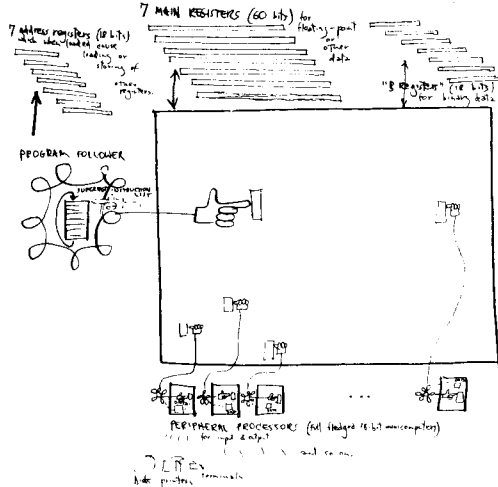 7 address registers (18 bits)
which when loaded cause
loading or
storing of
other
registers.
7 MAIN REGISTERS (60 bits) for
floating-point
or
other
data
"B Registers" (18 bits)
for binary data
PROGRAM FOLLOWER
SUPERFAST INSTRUCTION
LIST
...
PERIPHERAL PROCESSORS (full fledged 18-bit minicomputers)
for input & output
and so on.
disks printers terminals